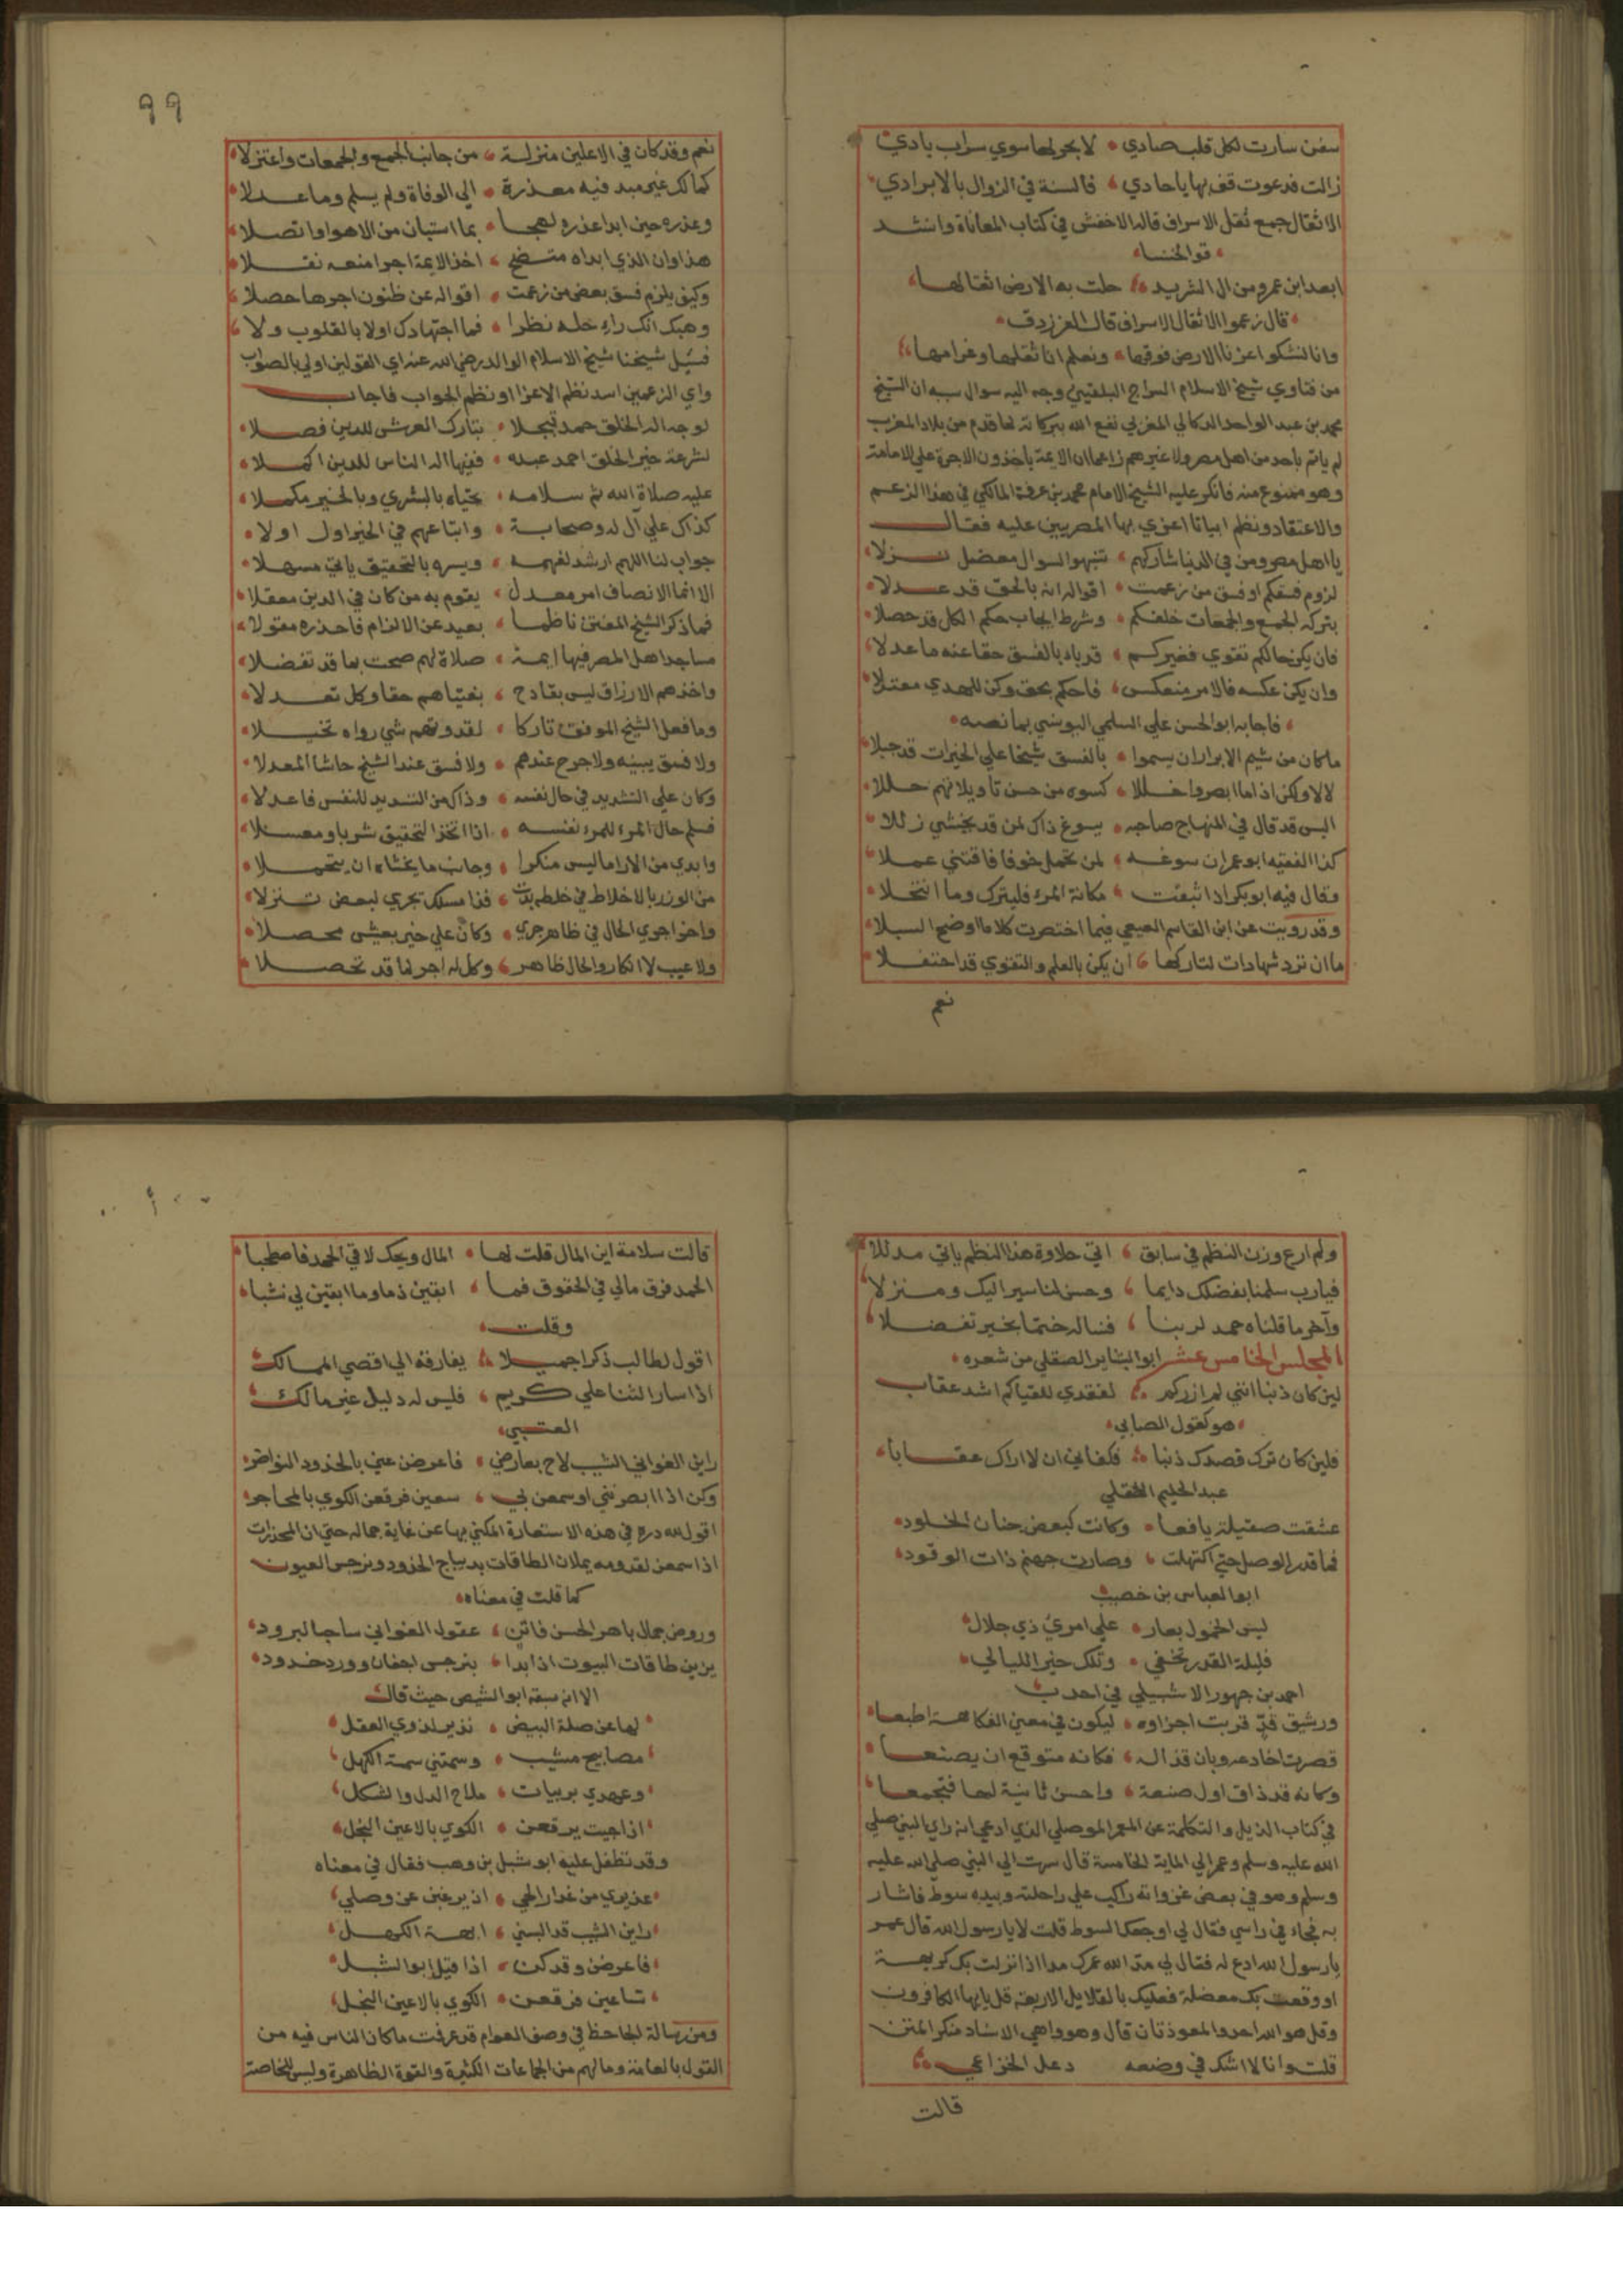 سفن سارت لكل قلب صادي لا بحر لها سوي سراب بادي
زالت فدعوت قف بها يا حادي فالسنة في الزوال بالابرادي
الاثقال جمع ثقل الاسراف قاله الاخفش في كتاب المعاياة وانشد
قو الخنسا
ابعد ابن عمرو من ال الشريد حلت به الارض اثقالها
قال زعموا الاثقال الاسراف قال الفرزدق
وانا لنشكو اعزنا الارض فوقها ونعلم انا ثقلها وغرامها
من فتاوي شيخ الاسلام السراج البلقيني وجه اليه سوال سببه ان الشيخ
محمد بن عبد الواحد الدكالي المغربي نفع الله ببركاته لما قدم من بلاد المغرب
لم ياتم باحد من اهل مصر ولا غيرهم زاعما ان الايمة ياخذون الاجرة علي الامامة
وهو ممنوع منه فانكر عليه الشيخ الامام محمد بن عرفة المالكي في هذا الزعم
والاعتقاد ونظم ابياتا اعزي بها المصريين عليه فقال
يا اهل مصر ومن في الدنيا شاركهم تنبهوا لسوال معضل نزلا
لزوم فسقكم او فسق من زعمت اقواله انه بالحق قد عدلا
بتركه الجمع والجمعات خلفكم وشرط ايجاب حكم الكل قد حصلا
فان يكن حالكم تقوي فغيركم قد باء بالفسق حقا عنه ما عدلا
وان يكن عكسه فالامر منعكس فاحكم بحق وكن للهدي معتلا
فاجابه ابو الحسن علي السلمي التونسي بما نصه
ما كان من شيم الابرار ان يسموا بالفسق شيخا علي الخيرات قد جبلا
لا لا ولكن اذا ما ابصروا خللا كسوه من حسن تاويلاتهم حللا
اليس قد قال في المنهاج صاحبه يسوغ ذاك لمن قد يختشي زللا
كذا الفقيه ابو عمران سوغه لمن تخيل خوفا فاقتني عملا
وقال فيه ابو بكر اذا ثبتت مكانة المرء فليترك وما انتخلا
وقد رويت عن ابن القاسم العتيقي فيما اختصرت كلاما اوضح السبلا
ما ان ترد شهادات لتاركها ان يكن بالعلم والتقوي قد احتفلا
نعم
٩٩
نعم وقد كان في الاعلين منزلة من جانب الجمع والجمعات واعتزلا
كمالك غير مبد فيه معذرة الي الوفاة ولم يسلم وما عدلا
وعذره حين ابدا عذره لهجا بما استبان من الاهوا واتصلا
هذا وان الذي ابداه متضح اخذ الايمة اجرا منعه نقلا
وكيف يلزم فسق بعض من زعمت اقواله عن ظنون اجرها حصلا
وهبك انك راء حله نظرا فما اجتهادك اولا بالقلوب ولا
فسيل شيخنا شيخ الاسلام الوالد رضي الله عنه اي القولين اولي بالصواب
واي الزعمين اسد نظم الاعزا او نظم الجواب فاجاب
لوجه اله الخلق حمد تبجلا بتارك العرش للدين فصلا
لشرعة خير الخلق احمد عبده ففيها اله الناس للدين اكملا
عليه صلاة الله ثم سلامه تحياه بالبشري وبالخير مكملا
كذاك علي آل له وصحابة واتباعهم في الخير اول اولا
جواب لنا اللهم ارشد لفهمه ويسره بالتحقيق ياتي مسهلا
الا انما الانصاف امر معدل يقوم به من كان في الدين معقلا
فما ذكر الشيخ المفتي ناظما بعيد عن الالزام فاحذره مقولا
مساجد اهل المصر فيها ايمة صلاة لهم صحت بما قد تفضلا
واخذهم الارزاق ليس بقادح بفتياهم حقا وكل تعدلا
وما فعل الشيخ الموفق تاركا لقدوتهم شي رواه تخيلا
ولا فسق يبينه ولا جرح عندهم ولا فسق عند الشيخ حاشا المعدلا
وكان علي التشديد في حال نفسه وذاك من التشديد للنفس فاعدلا
فسلم حال المرء للمرء نفسه اذا اتخذ التحقيق شربا ومعسلا
وابدي من الارا ما ليس منكرا وجانب ما يخشاه ان يتحملا
من الوزر بالاخلاط في خلطه بدت فذا مسلك تجري لبعض تنزلا
واخر اجري الحال في ظاهر جري وكان علي خير بعيش محصلا
ولا عيب لا انكار والحال ظاهر وكل له اجر لما قد تحصلا
ولم ارع وزن النظم في سابق اتي حلاوة هذا النظم ياتي مدللا
فيارب سلمنا بفضلك دايما وحسن لنا سيرا اليك ومنزلا
وآخر ما قلناه حمد لربنا فنساله ختما بخير تفضلا
المجلس الخامس عشر ابو البشاير الصقلي من شعره
لين كان ذنبا انني لم ازركم لفقدي للقياكم اشد عقاب
هو كقول الصابي
فلين كان ترك قصدك ذنبا فكفاني ان لا اراك عقابا
عبد الحليم الصقلي
عشقت صقيلة يافعا وكانت كبعض جنان الخلود
فما قدر الوصل حتي اكتهلت وصارت جهنم ذات الوقود
ابو العباس بن خصيب
ليس الخمول بعار علي امرئ ذي جلال
فليلة القدر تخفي وتلك خير الليالي
احمد بن جهور الاشبيلي في احدب
ورشيق قد قربت اجزاوه ليكون في معني الفكاهة اطبعا
قصرت اخادعه وبان قذاله فكانه متوقع ان يصفعا
وكانه قد ذاق اول صفعة واحس ثانية لها فتجمعا
في كتاب الذيل والتكملة عن المعمر الموصلي الذي ادعي انه راي النبي صلي
الله عليه وسلم وعمر الي الماية الخامسة قال سرت الي النبي صلي الله عليه
وسلم وهو في بعض غزواته راكب علي راحلته وبيده سوط فاشار
به فجاء في راسي فقال لي اوجعك السوط قلت لا يا رسول الله قال عمر
يا رسول الله ادع له فقال لي مد الله عمرك مدا اذا نزلت بك كريهة
او وقعت بك معضلة فعليك بالقلاقل الاربعة قل يا يها الكافرون
وقل هو الله احد والمعوذتان قال وهو واهي الاسناد منكر المتن
قلت وانا لا اشك في وضعه دعبل الخزاعي
قالت
١٠٠
قالت سلامة اين المال قلت لها المال ويحك لاقي الحمد فاصطحبا
الحمد فرق مالي في الحقوق فما ابقين ذما وما ابقين لي نشبا
وقلت
اقول لطالب ذكرا جميلا يفارقه الي اقصي الممالك
اذا سار الثنا علي كريم فليس له دليل غير مالك
العتبي
راين الغواني الشيب لاح بعارضي فاعرضن عني بالخدود النواضر
وكن اذا ابصرنني او سمعن بي سعين فرقعن الكوي بالمحاجر
اقول لله دره في هذه الاستعارة المكني بها عن غاية جماله حتي ان المخدرات
اذا سمعن لقدومه يملان الطاقات بديباج الخدود ونرجس العيون
كما قلت في معناه
وروض جمال باهر الحسن فاتن عقول الغواني ساحبا لبرود
يزين طاقات البيوت اذا بدا بنرجس اجفان وورد خدود
الا انه سبقه ابو الشيص حيث قال
لها عن صلة البيض نذير لذوي العقل
مصابيح مشيب وسمتني سمة الكهل
وعهدي بربيات ملاح الدل والشكل
اذا جيت يرقعن الكوي بالاعين النجل
وقد تطفل عليه ابو شبل بن وهب فقال في معناه
عذيري من غدار الحي اذ يرغبن عن وصلي
راين الشيب قد البسني ابهة الكهل
فاعرضن وقد كن اذا قيل ابو الشبل
تساعين فرقعن الكوي بالاعين النجل
ومن رسالة الجاحظ في وصف العوام قد عرفت ما كان الناس فيه من
القول بالعامة وما لهم من الجماعات الكثيرة والقوة الظاهرة وليس للخاصة